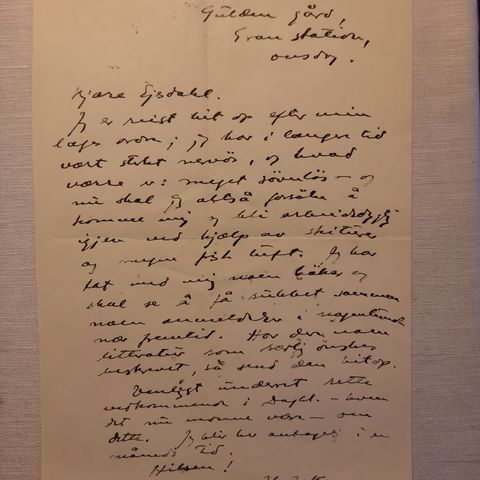 Gulden gård,
Gran station,
onsdag.
Kjære Ejsdahl.
Jeg er reist hit op efter min
læges ordre; jeg har i længer tid
vært sterkt nervøs, og hvad
værre er: meget søvnløs – og
nu skal jeg altså forsøke å
komme mig og bli arbeidsdygtig
igjen ved hjælp av skiturer
og megen frisk luft. Jeg har
tat med mig noen bøker og
skal se å få rublet sammen
noen anmeldelser i nogenlunde
nær fremtid. Har dere noen
litteratur som særlig ønskes
beskrevet, så send den hitop.
Venligst underret rette
vedkommende i Dagbl. – hvem
det nu monne være – om
dette. Jeg blir her antagelig i en
måneds tid.
Hilsen!